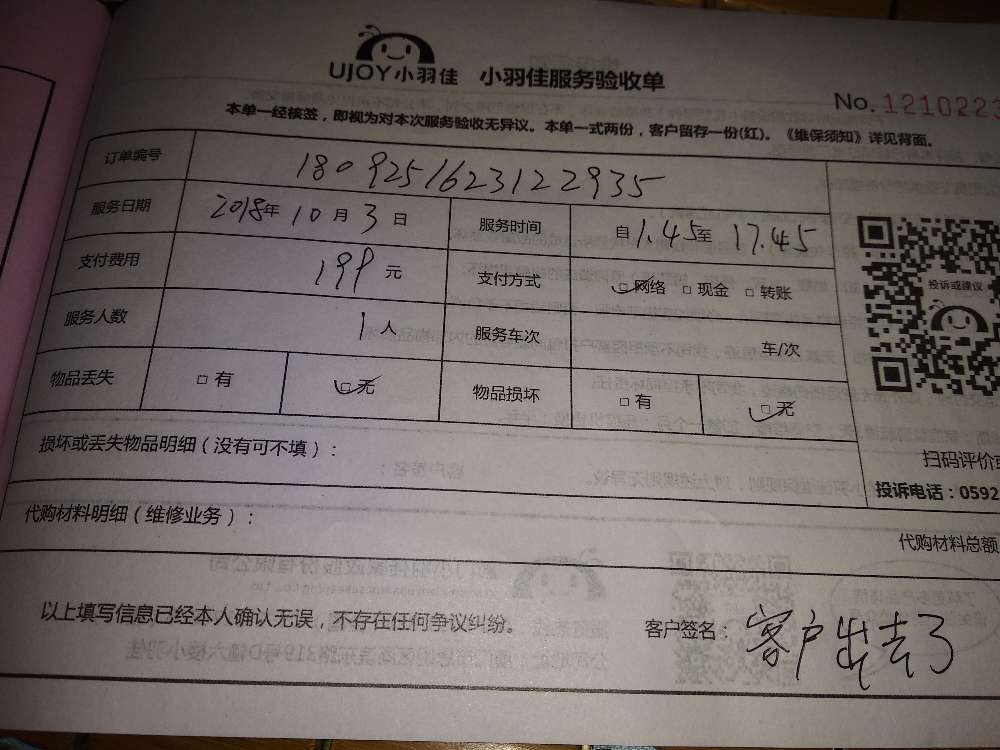 UJOY小羽佳 小羽佳服务验收单
No. 1210223
本单一经核签，即视为对本次服务验收无异议。本单一式两份，客户留存一份(红)。《维保须知》详见背面。
订单编号 1809251623122935
服务日期 2018年 10 月 3 日 服务时间 自 1.45 至 17.45
支付费用 199 元 支付方式 □网络 □现金 □转账
服务人数 1 人 服务车次 车/次
物品丢失 □有 □无 物品损坏 □有 □无
投诉或建议
损坏或丢失物品明细（没有可不填）：
扫码评价
投诉电话：0592
代购材料明细（维修业务）：
代购材料总额
以上填写信息已经本人确认无误，不存在任何争议纠纷。
客户签名：客户出去了